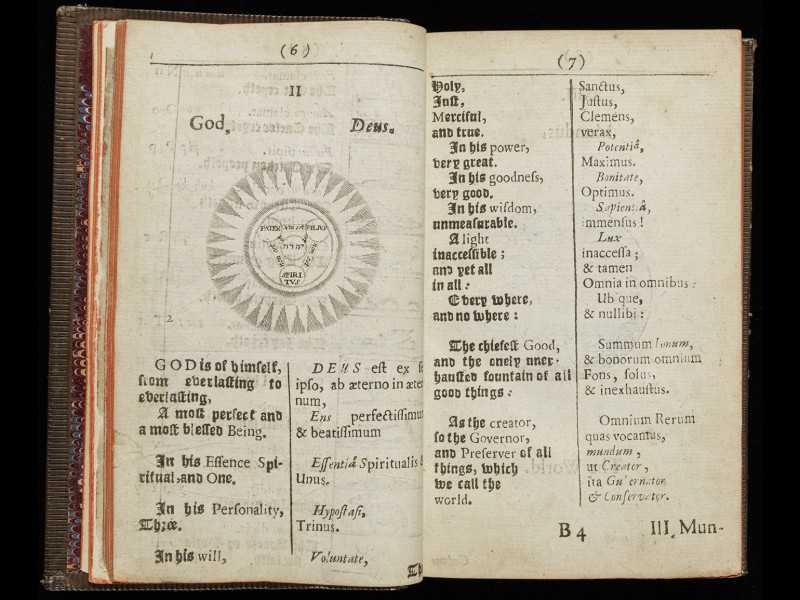 (6)
II
God.
Deus.
PATER
FILIUS
SPIRI
TVS
2
GOD is of himſelf,
from everlaſting to
everlaſting,
A moſt perfect and
a moſt bleſſed Being.
In his Eſſence Spi-
ritual, and One.
In his Perſonality,
Three.
In his will,
DEUS eſt ex
ipſo, ab æterno in
num,
Ens perfectiſſimum
& beatiſſimum
Eſſentiâ Spiritualis &
Unus.
Hypoſtaſi,
Trinus.
Voluntate,
(7)
Holy,
Juſt,
Merciful,
and true.
In his power,
very great.
In his goodneſs,
very good.
In his wiſdom,
unmeaſurable.
A light
inacceſſible;
and yet all
in all:
Every where,
and no where:
The chiefeſt Good,
and the onely unex-
hauſted fountain of all
good things:
As the creator,
ſo the Governor,
and Preſerver of all
things, which
we call the
world.
Sanctus,
Juſtus,
Clemens,
verax,
Potentiâ,
Maximus.
Bonitate,
Optimus.
Sapientiâ,
immenſus!
Lux
inacceſſa;
& tamen
Omnia in omnibus:
Ubique,
& nullibi:
Summum bonum,
& bonorum omnium
Fons, ſolus,
& inexhauſtus.
Omnium Rerum
quas vocamus,
mundum,
ut Creator,
ita Gubernator
& Conſervator.
B 4
III. Mun-